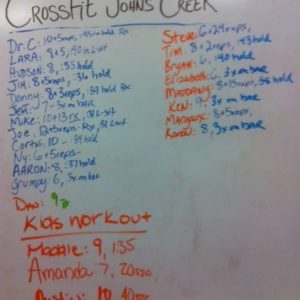 CROSSFIT JOHNS CREEK
Dr. C: 10+5reps, :45 in hold Rx
LARA: 8+5, 40 in L sit
HUDSON: 8, :55 hold
Jim: 8+5reps, 36 hold
Donny: 8+3reps, hold Rx
Jed: 7- 3x m bar
Mike: 10+13 Rx, 31 L-sit
Joe: 12+8reps- Rx, 31 L sit
Corth, 10 - hold
Ny: 6+5reps-
AARON: 8, :37 hold
Grumpy: 6, 3x m bar
Dav: 92
Steve: 6+29reps,
Tim: 8+2reps, :43 hold
Bryan: 6, :40 hold
Elizabeth: 6, 3x m bar
MADDAWG: 8+13reps, 58 hold
KEN: 9, 3x m bar
Maddux: 8+5reps,
8, 3x m bar
Kids Workout
Maddie: 9, 135
Amanda: 7, 20sec
Austin: 10 40sec